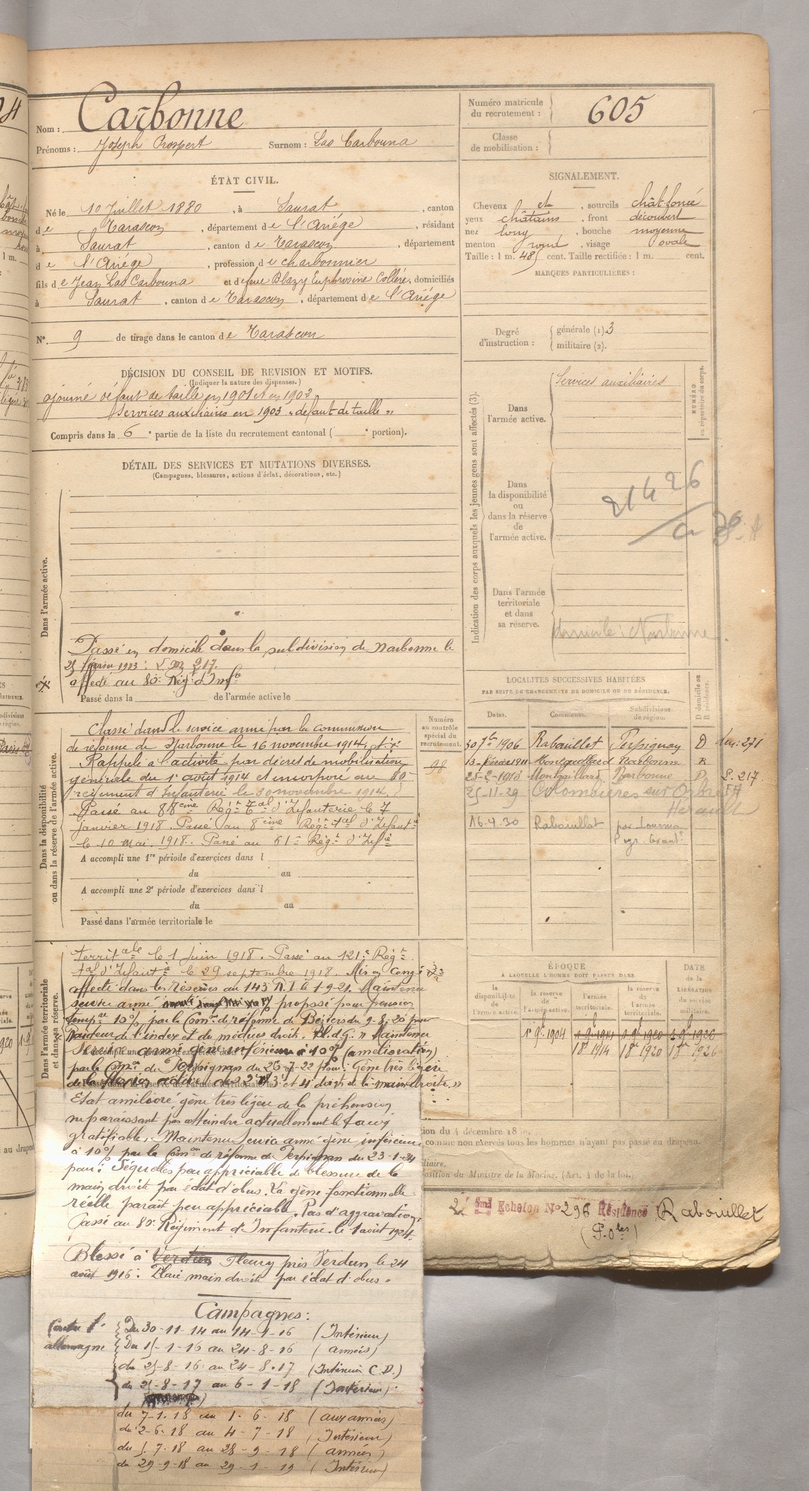 Nom : Carbonne
Prénoms : Joseph Prospert Surnom : Las Carbouna
ÉTAT CIVIL.
Né le 10 Juillet 1880, à Saurat, canton
de Tarascon, département de l'Ariége, résidant
à Saurat, canton de Tarascon, département
de l'Ariége, profession de charbonnier
fils de Jean Las Carbouna et de feue Blazy Euphrosine Collère, domiciliés
à Saurat, canton de Tarascon, département de l'Ariége
N° 9 de tirage dans le canton de Tarascon
DÉCISION DU CONSEIL DE REVISION ET MOTIFS.
(Indiquer la nature des dispenses.)
ajourné défaut de taille en 1901 et en 1902,
Services auxiliaires en 1903 "défaut de taille"
Compris dans la 6e partie de la liste du recrutement cantonal ( e portion).
DÉTAIL DES SERVICES ET MUTATIONS DIVERSES.
(Campagnes, blessures, actions d'éclat, décorations, etc.)
Dans l'armée active.
Passé en domicile dans la subdivision de Narbonne le
25 février 1913 : L. D 217.
affecté au 80e Rég. d'Infie
Passé dans la de l'armée active le
Dans la disponibilité
ou dans la réserve de l'armée active.
Classé dans le service armé par la commission
de réforme de Narbonne le 16 novembre 1914.
Rappelé à l'activité par décret de mobilisation
générale du 1er août 1914 et incorporé au 80e
régiment d'Infanterie le 30 novembre 1914.
Passé au 88eme Régt Tal d'Infanterie le 7
janvier 1918. Passé au 8eme Régt Tal d'Infant
le 10 mai 1918. Passé au 61e Régt d'Infie
A accompli une 1re période d'exercices dans l
du au
A accompli une 2e période d'exercices dans l
du au
Passé dans l'armée territoriale le
Numéro
au contrôle
spécial du
recrutement.
98
Dans l'armée territoriale
et dans sa réserve.
territale le 1 juin 1918. Passé au 121e Régt
tal d'Infanie le 29 septembre 1918. Mis en congé
affecté dans les réserves du 143 R.I. le 1-9-21 Maintenu
service armé proposé pour pension
tempre 10% par la Comon de réforme de Béziers du 9-8-20 pour
raideur de l'index et du médius droit. Bl. d. G. " Maintenu
Service armé gêne inférieure à 10% (amélioration)
par la Comon de Perpignan du 25-7-22 pour : Gêne très légère
de la flexion active des 2e 3e et 4e doigts de la main droite "
Etat amélioré gêne très légère de la préhension
ne paraissant pas atteindre actuellement le taux
gratifiable. Maintenu Service armé gêne inférieure
à 10% par la Comon de réforme de Perpignan du 23-1-24
pour : Séquelles peu appréciable de blessure de la
main droite par éclat d'obus. La gêne fonctionnelle
réelle parait peu appréciable. Pas d'aggravation,
Passé au 80e Régiment d'Infanterie le 1 août 1924.
Blessé à Verdun Fleury près Verdun le 24
août 1916. Plaie main droite par éclat d'obus.
Campagnes :
Contre l'
allemagne
Du 30-11-14 au 14-1-16 (Intérieur)
Du 15-1-16 au 24-8-16 (armées)
du 25-8-16 au 24-8-17 (Intérieur C.D.)
du 25-8-17 au 6-1-18 (Intérieur)
du 7-1-18 au 1-6-18 (aux armées)
du 2-6-18 au 4-7-18 (Intérieur)
du 5-7-18 au 28-9-18 (armées)
du 29-9-18 au 29-1-19 (Intérieur)
Numéro matricule
du recrutement : 605
Classe
de mobilisation :
SIGNALEMENT.
Cheveux et, sourcils chât foncé
yeux châtains, front découvert
nez long, bouche moyenne
menton rond, visage ovale
Taille : 1 m. 48 cent. Taille rectifiée : 1 m. cent.
MARQUES PARTICULIÈRES :
Degré
d'instruction : générale (1) 3
militaire (2).
Indication des corps auxquels les jeunes gens sont affectés (3).
NUMÉRO
au répertoire du corps.
Dans
l'armée active.
Services auxiliaires
Dans
la disponibilité
ou
dans la réserve
de
l'armée active.
Dans
l'armée
territoriale
et dans
sa réserve.
domicile : Narbonne
LOCALITÉS SUCCESSIVES HABITÉES
PAR SUITE DE CHANGEMENTS DE DOMICILE OU DE RÉSIDENCE.
Dates. Communes. Subdivisions de région. D domicile ou R résidence.
30 7bre 1906 Rabouillet Perpignan D
Montgaillard Narbonne R
25-2-1913 Montgaillard Narbonne D L. 217
25-11-29 Colombières sur Orb
Hérault
16.4.30 Rabouillet
ÉPOQUE
A LAQUELLE L'HOMME DOIT PASSER DANS
la disponibilité de l'armée active.
la réserve de l'armée active.
l'armée territoriale.
la réserve de l'armée territoriale.
DATE
de la
LIBÉRATION
du service
militaire.
1 9bre 1904
18 1914 18 1920 18 1926
2e Echelon N° 296 Résidence Rabouillet
(P. Oles)